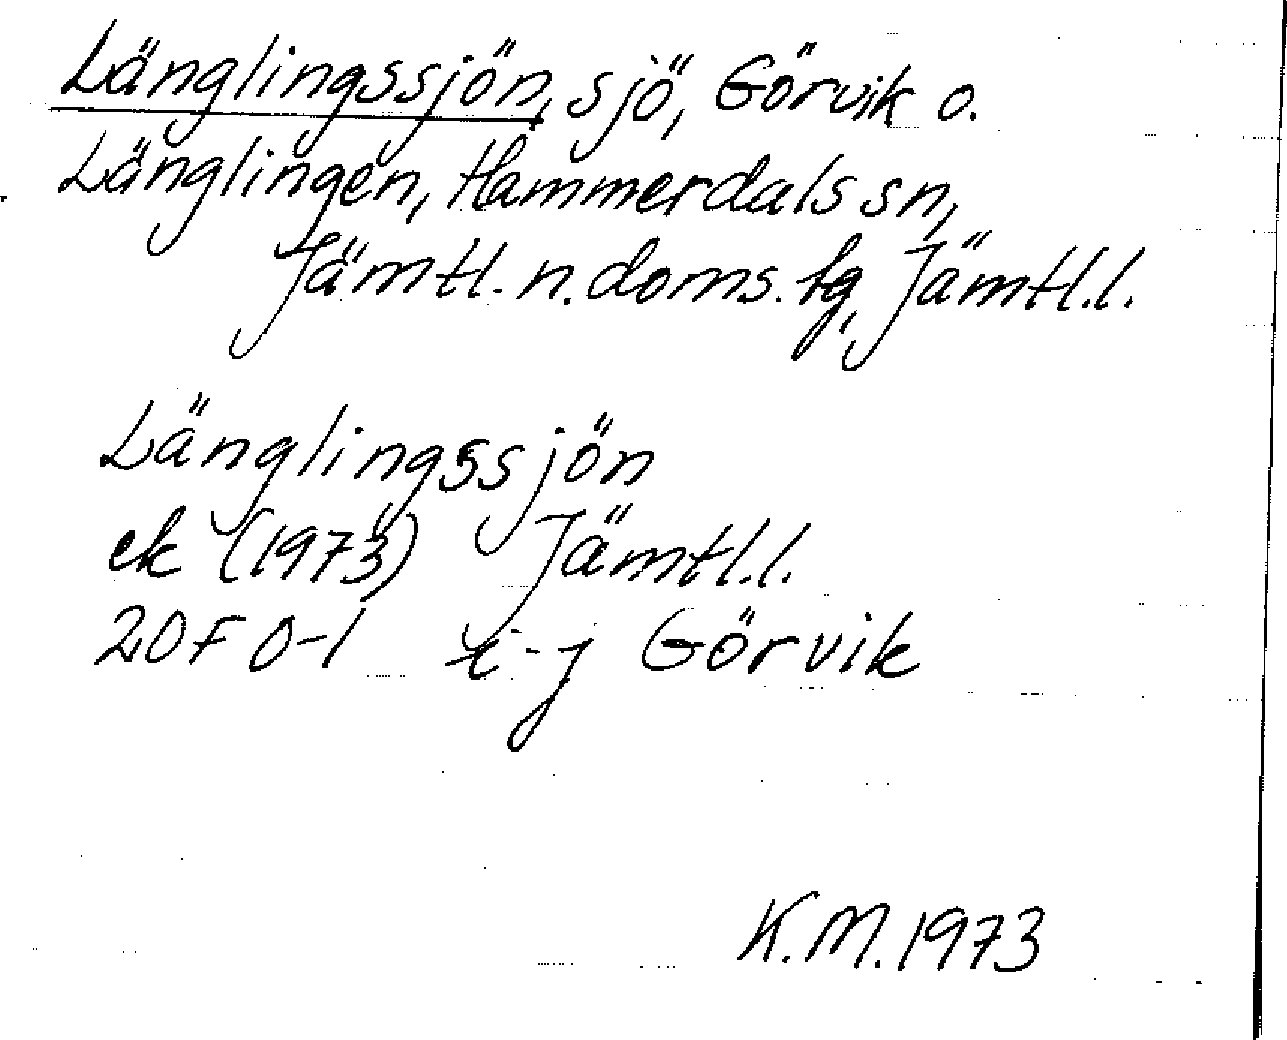 Länglingssjön, sjö, Görvik o.
Länglingen, Hammerdals sn,
Jämtl. n. doms. tg, Jämtl.l.
Länglingssjön
ek (1973) Jämtl.l.
20F 0-1 i-j Görvik
K.M. 1973